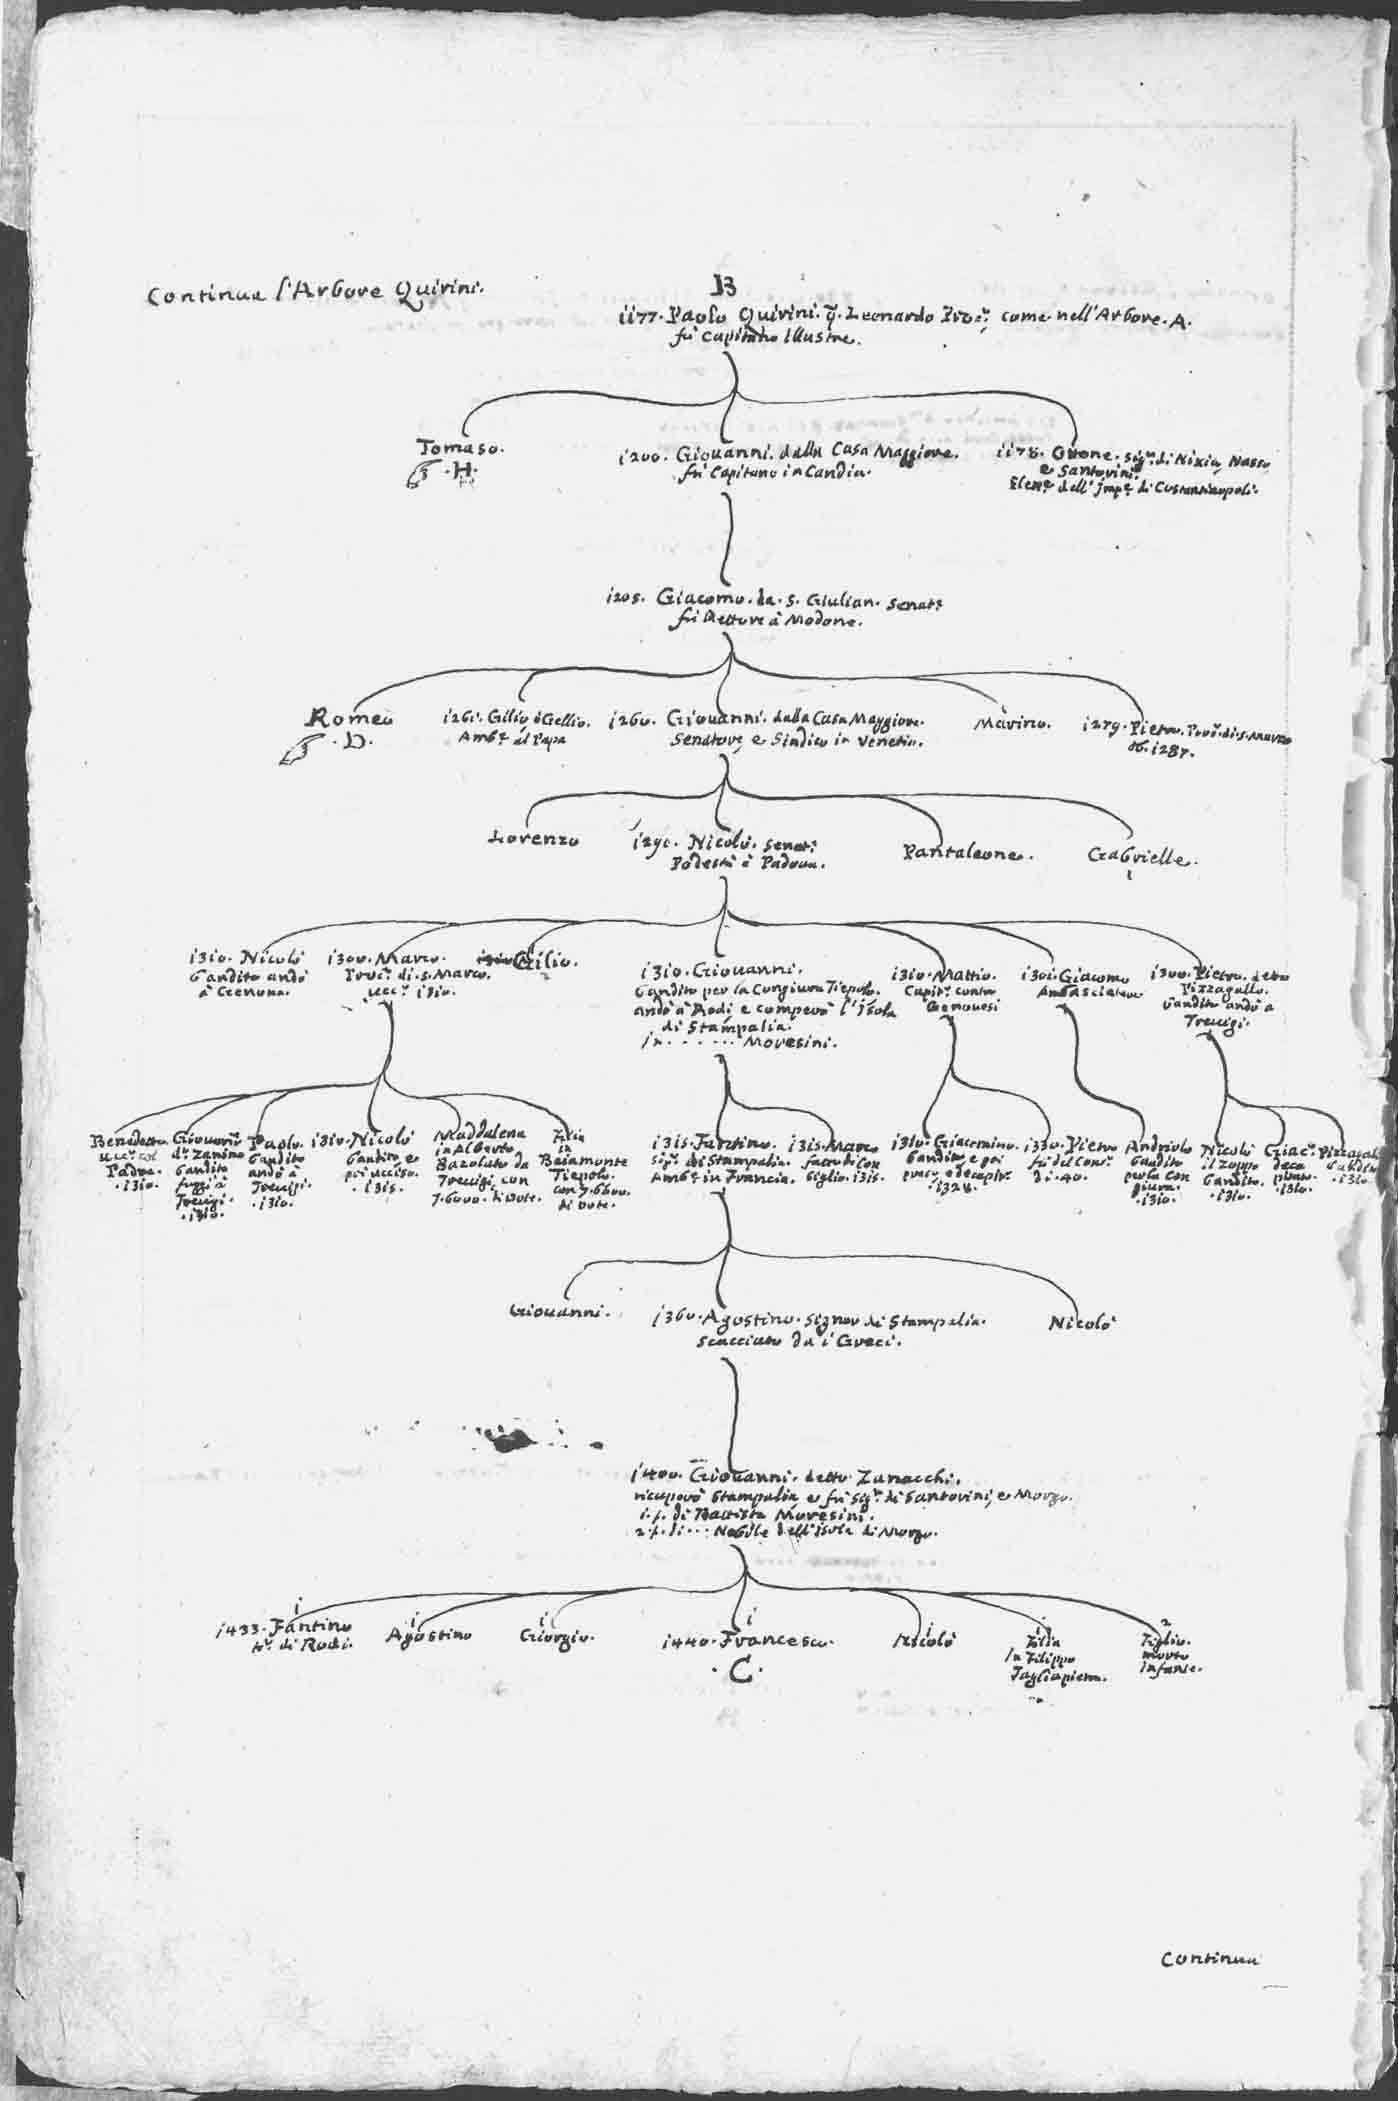 Continua l'Arbore Quirini.
B
1177. Paolo Quirini. q. Leonardo Proc.r come nell'Arbore. A.
fù Capitanio illustre.
Tomaso.
.H.
1200. Giovanni. dalla Casa Maggiore.
fù Capitano in Candia.
1178. Ottone. sig.r di Nixia, Nasso
e Santorini.
dell' Imp.o di Costantinopoli.
1205. Giacomo. da. S. Giulian. Senat.r
fù Rettore à Modone.
Romeo
. D.
1261. Gilio ò Gellio.
Amb.r al Papa
1260. Giovanni. dalla Casa Maggiore.
Senatore, e Sindico in Venetia.
Marino.
1279. Pietro. Proc.r di. S. Marco
1287.
Lorenzo
Nicolò. Senat.r
Podestà à Padoua.
Pantaleone.
Gabrielle.
1310. Nicolò
bandito andò
à Cremona.
1300. Marco.
Proc.r di. S. Marco.
ucc.o 1310.
Gilio.
1310. Giovanni.
bandito per la Congiura Tiepolo.
andò à Rodi, e comperò l'Isola
di Stampalia.
In . . . . . . Moresini.
1310. Mattio.
Capit.o contro
Genouesi
1301. Giacomo
Ambasciatore
1300. Pietro. detto
Pizzagallo.
bandito andò a
Treuigi.
Benedetto.
ucc.o col
Padre.
. 1310.
Giouanni
d.o Zanino
bandito
fuggì à
Treuigi.
. 1310.
Paolo.
bandito
andò à
Treuigi.
. 1310.
1310. Nicolò
bandito, e
poi ucciso.
. 1315.
Maddalena
in Alberto
Bazoleto da
Treuigi, con
7. 6000. di dote.
Filia
in
Baiamonte
Tiepolo.
con 7. 6600.
di dote.
1315. Fantino.
sig.r di Stampalia.
Amb.r in Francia.
1315. Marco
fatto di Con
siglio. 1315.
1310. Giacomino.
bandito, e poi
preso, e decapit.o
. 1328.
1330. Pietro
fù del Cons.o
di. 40.
Andriolo
bandito
per la Con
giura.
. 1310.
Nicolò
il Zoppo
bandito.
. 1310.
Giac.o
deca
pitato.
. 1310.
Pizzagallo
bandito
. 1310
Giouanni.
1360. Agostino. Signor di Stampalia.
scacciato da i Greci.
Nicolò
1400. Giouanni. detto Zanacchi.
ricuperò Stampalia e fù sig.r di Santorini, e Morgo.
1. p. di Battista Moresini.
2. p. di . . . Nobile dell'isola di Morgo.
1
1433. Fantino
di Rodi.
1
Agostino
1
Giorgio.
1
1440. Francesco.
. C.
1
Nicolò
1
Filia
In Filippo
Tagliapietra.
2
Figlio.
morto
infante.
Continua